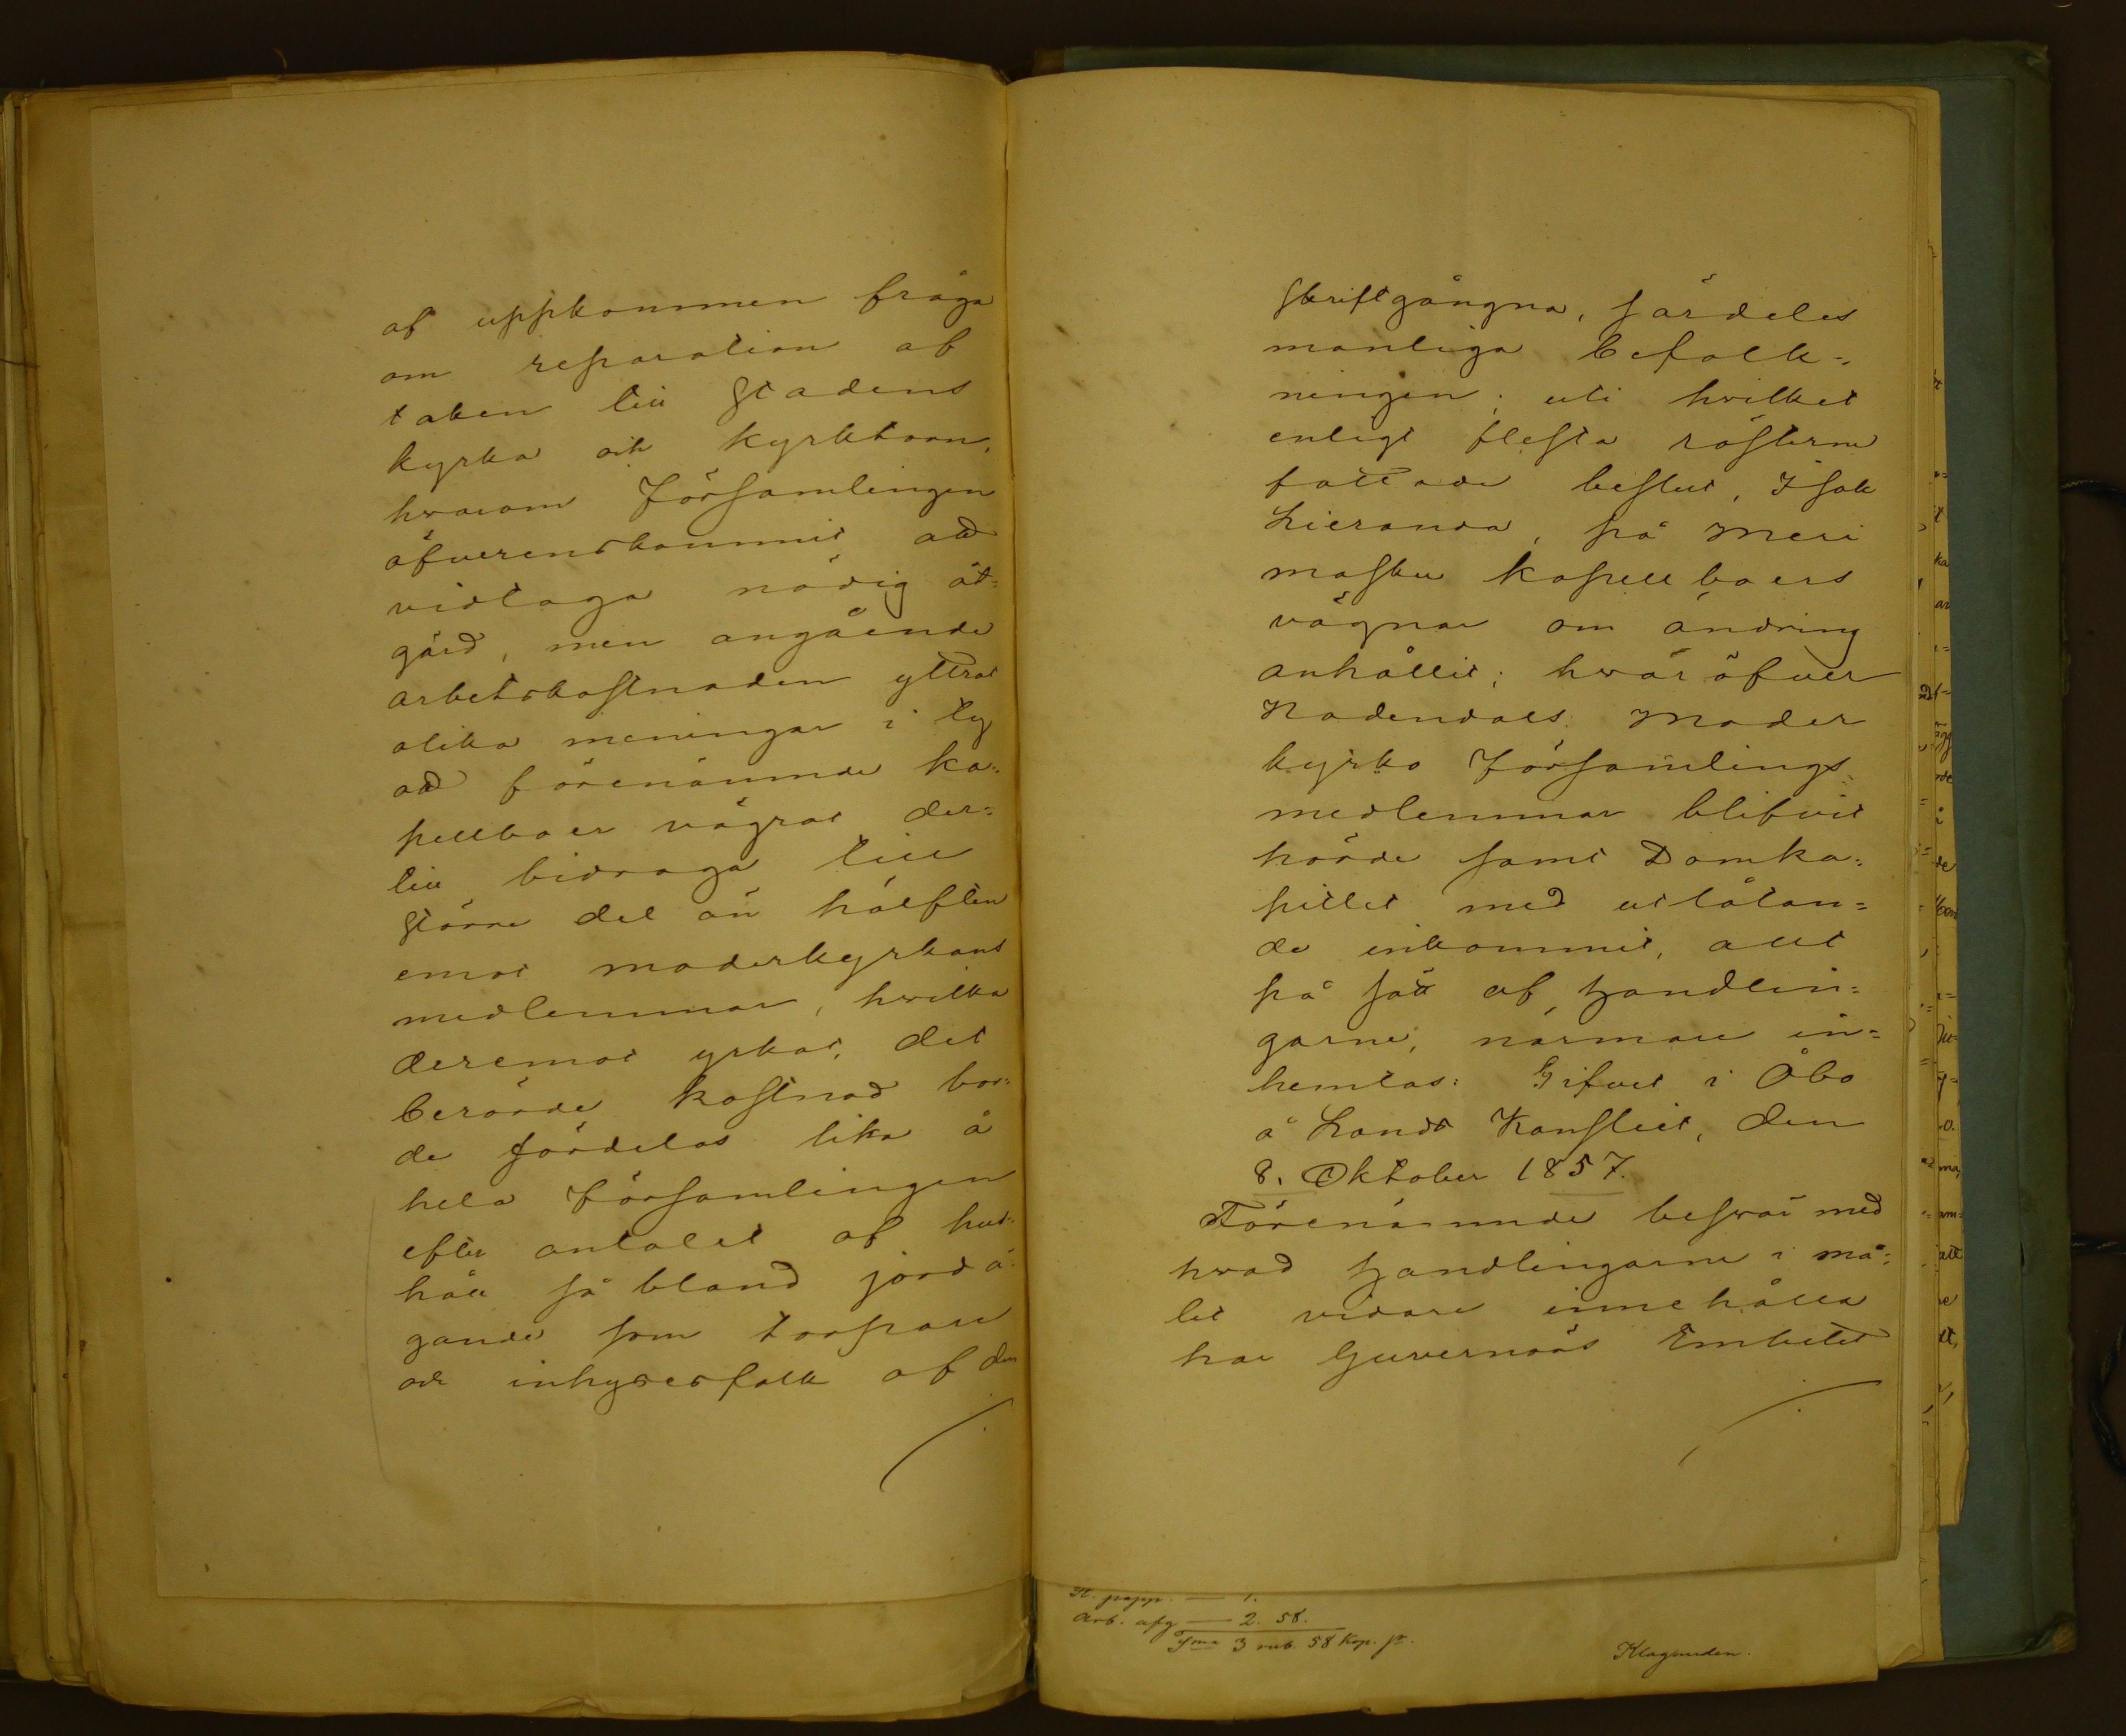 af uppkommen fråga
om reparation af
taken till Stadens
kyrka och kyrktorn,
hvarom Församlingen
öfverenskommit att
vidtaga nödig åt=
gärd, men angående
arbetskostnaden yttrat
olika meningar i ty
att förenämnde ka=
pellboer vägrat der=
till bidraga till
större del än hälften
emot moderkyrkans
medlemmar, hvilka
deremot yrkat, det
berörde kostnad bor=
de fördelas lika å
hela Församlingen
efter antalet af hus=
håll så bland jordä=
gande som torpare
och inhysesfolk af den
skriftgångna, särdeles
manliga befolk=
ningen; uti hvilket
enligt flesta rösterne
fattade beslut, Isak
Lieranda, på Meri
masku kapellboers
vägnar om ändring
anhållit; hvaröfver
Nådendals Moder
kyrko Församlings=
medlemmar blifvit
hörde samt Domka=
pitlet med utlåtan=
de inkommit, allt
på sätt af Handlin=
garne, närmare in=
hemtas: Gifvet i Åbo
å Lands Kansliet, den
8. Oktober 1857.
Förenämnde besvär med
hvad Handlingarne i må=
let vidare innehålla
har Guvernörs Embetet
St. papp. — 1.
Arb. afg — 2. 58.
Sma 3 rub. 58 Kop. sr.
Klaganden.